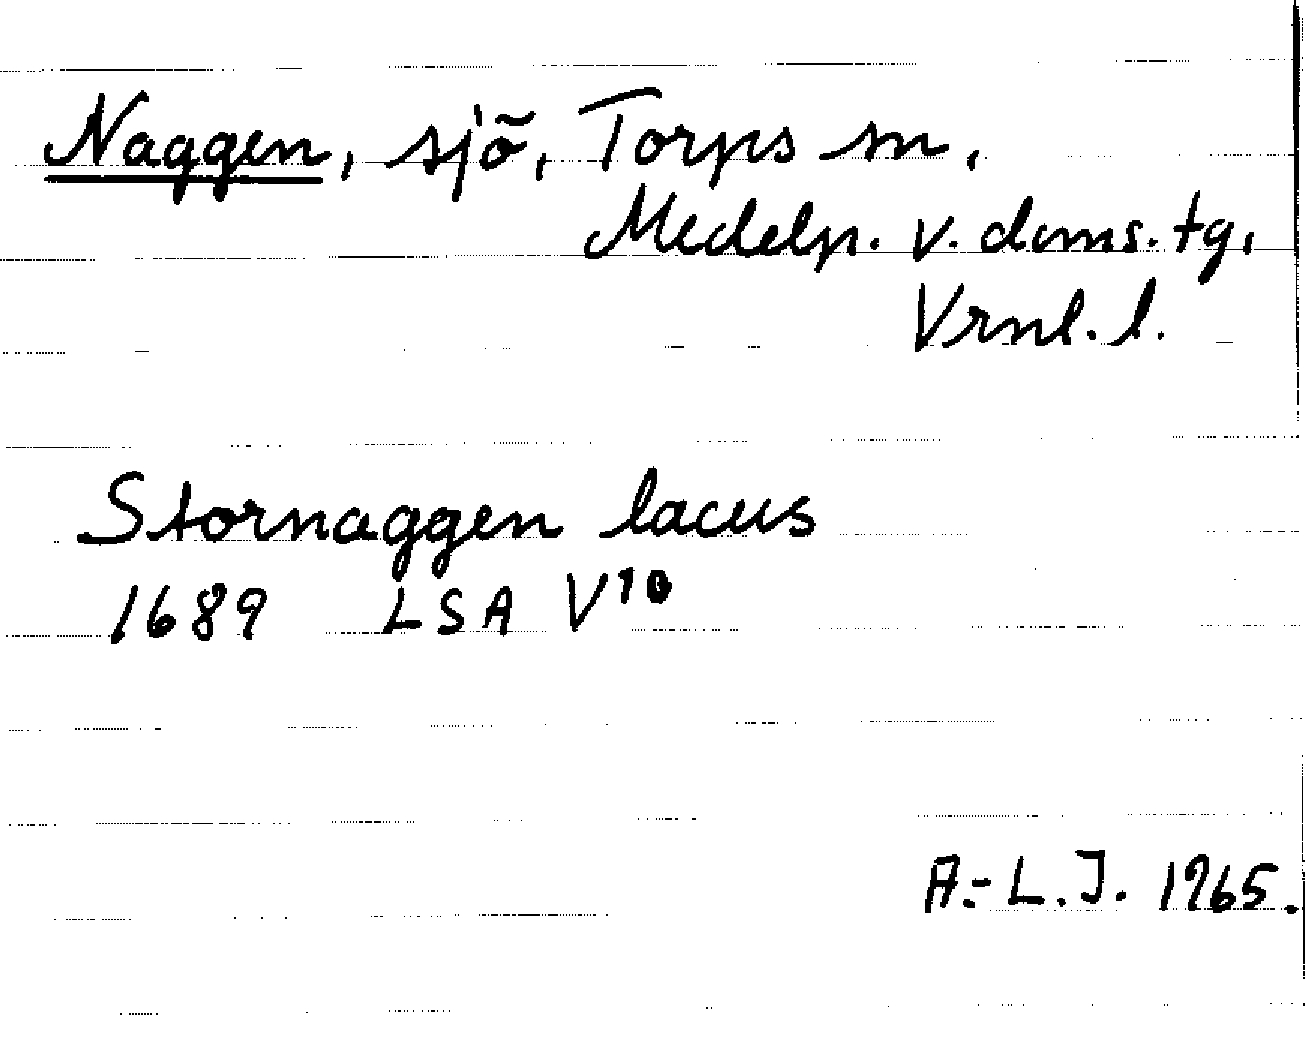 Naggen, sjö, Torps sn,
Medelp. v. doms. tg,
Vrnl. l.
Stornaggen lacus
1689 LSA V10
A.-L.J. 1965.